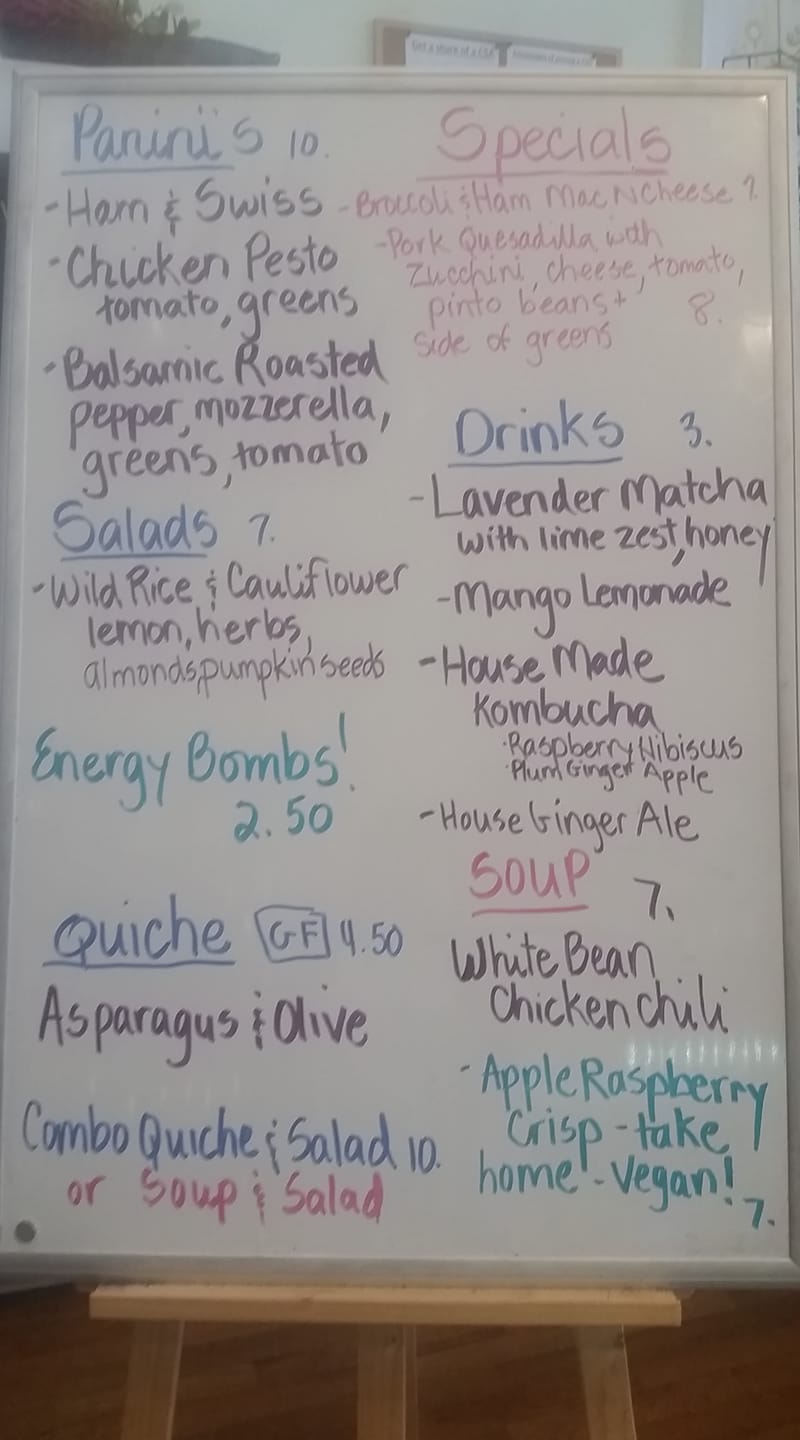 Panini's 10.
-Ham & Swiss
-Chicken Pesto
tomato, greens
-Balsamic Roasted
pepper, mozzerella,
greens, tomato
Salads 7.
-Wild Rice & Cauliflower
lemon, herbs,
almonds, pumpkin seeds
Energy Bombs!
2.50
Quiche GF 4.50
Asparagus & Olive
Combo Quiche & Salad 10.
or Soup & Salad
Specials
-Broccoli & Ham Mac N Cheese 7.
-Pork Quesadilla with
Zucchini, cheese, tomato,
pinto beans +
side of greens 8.
Drinks 3.
-Lavender Matcha
with lime zest, honey
-Mango Lemonade
-House Made
Kombucha
·Raspberry Hibiscus
·Plum Ginger Apple
-House Ginger Ale
Soup 7.
White Bean
Chicken Chili
-Apple Raspberry
Crisp - take
home - Vegan!
7.